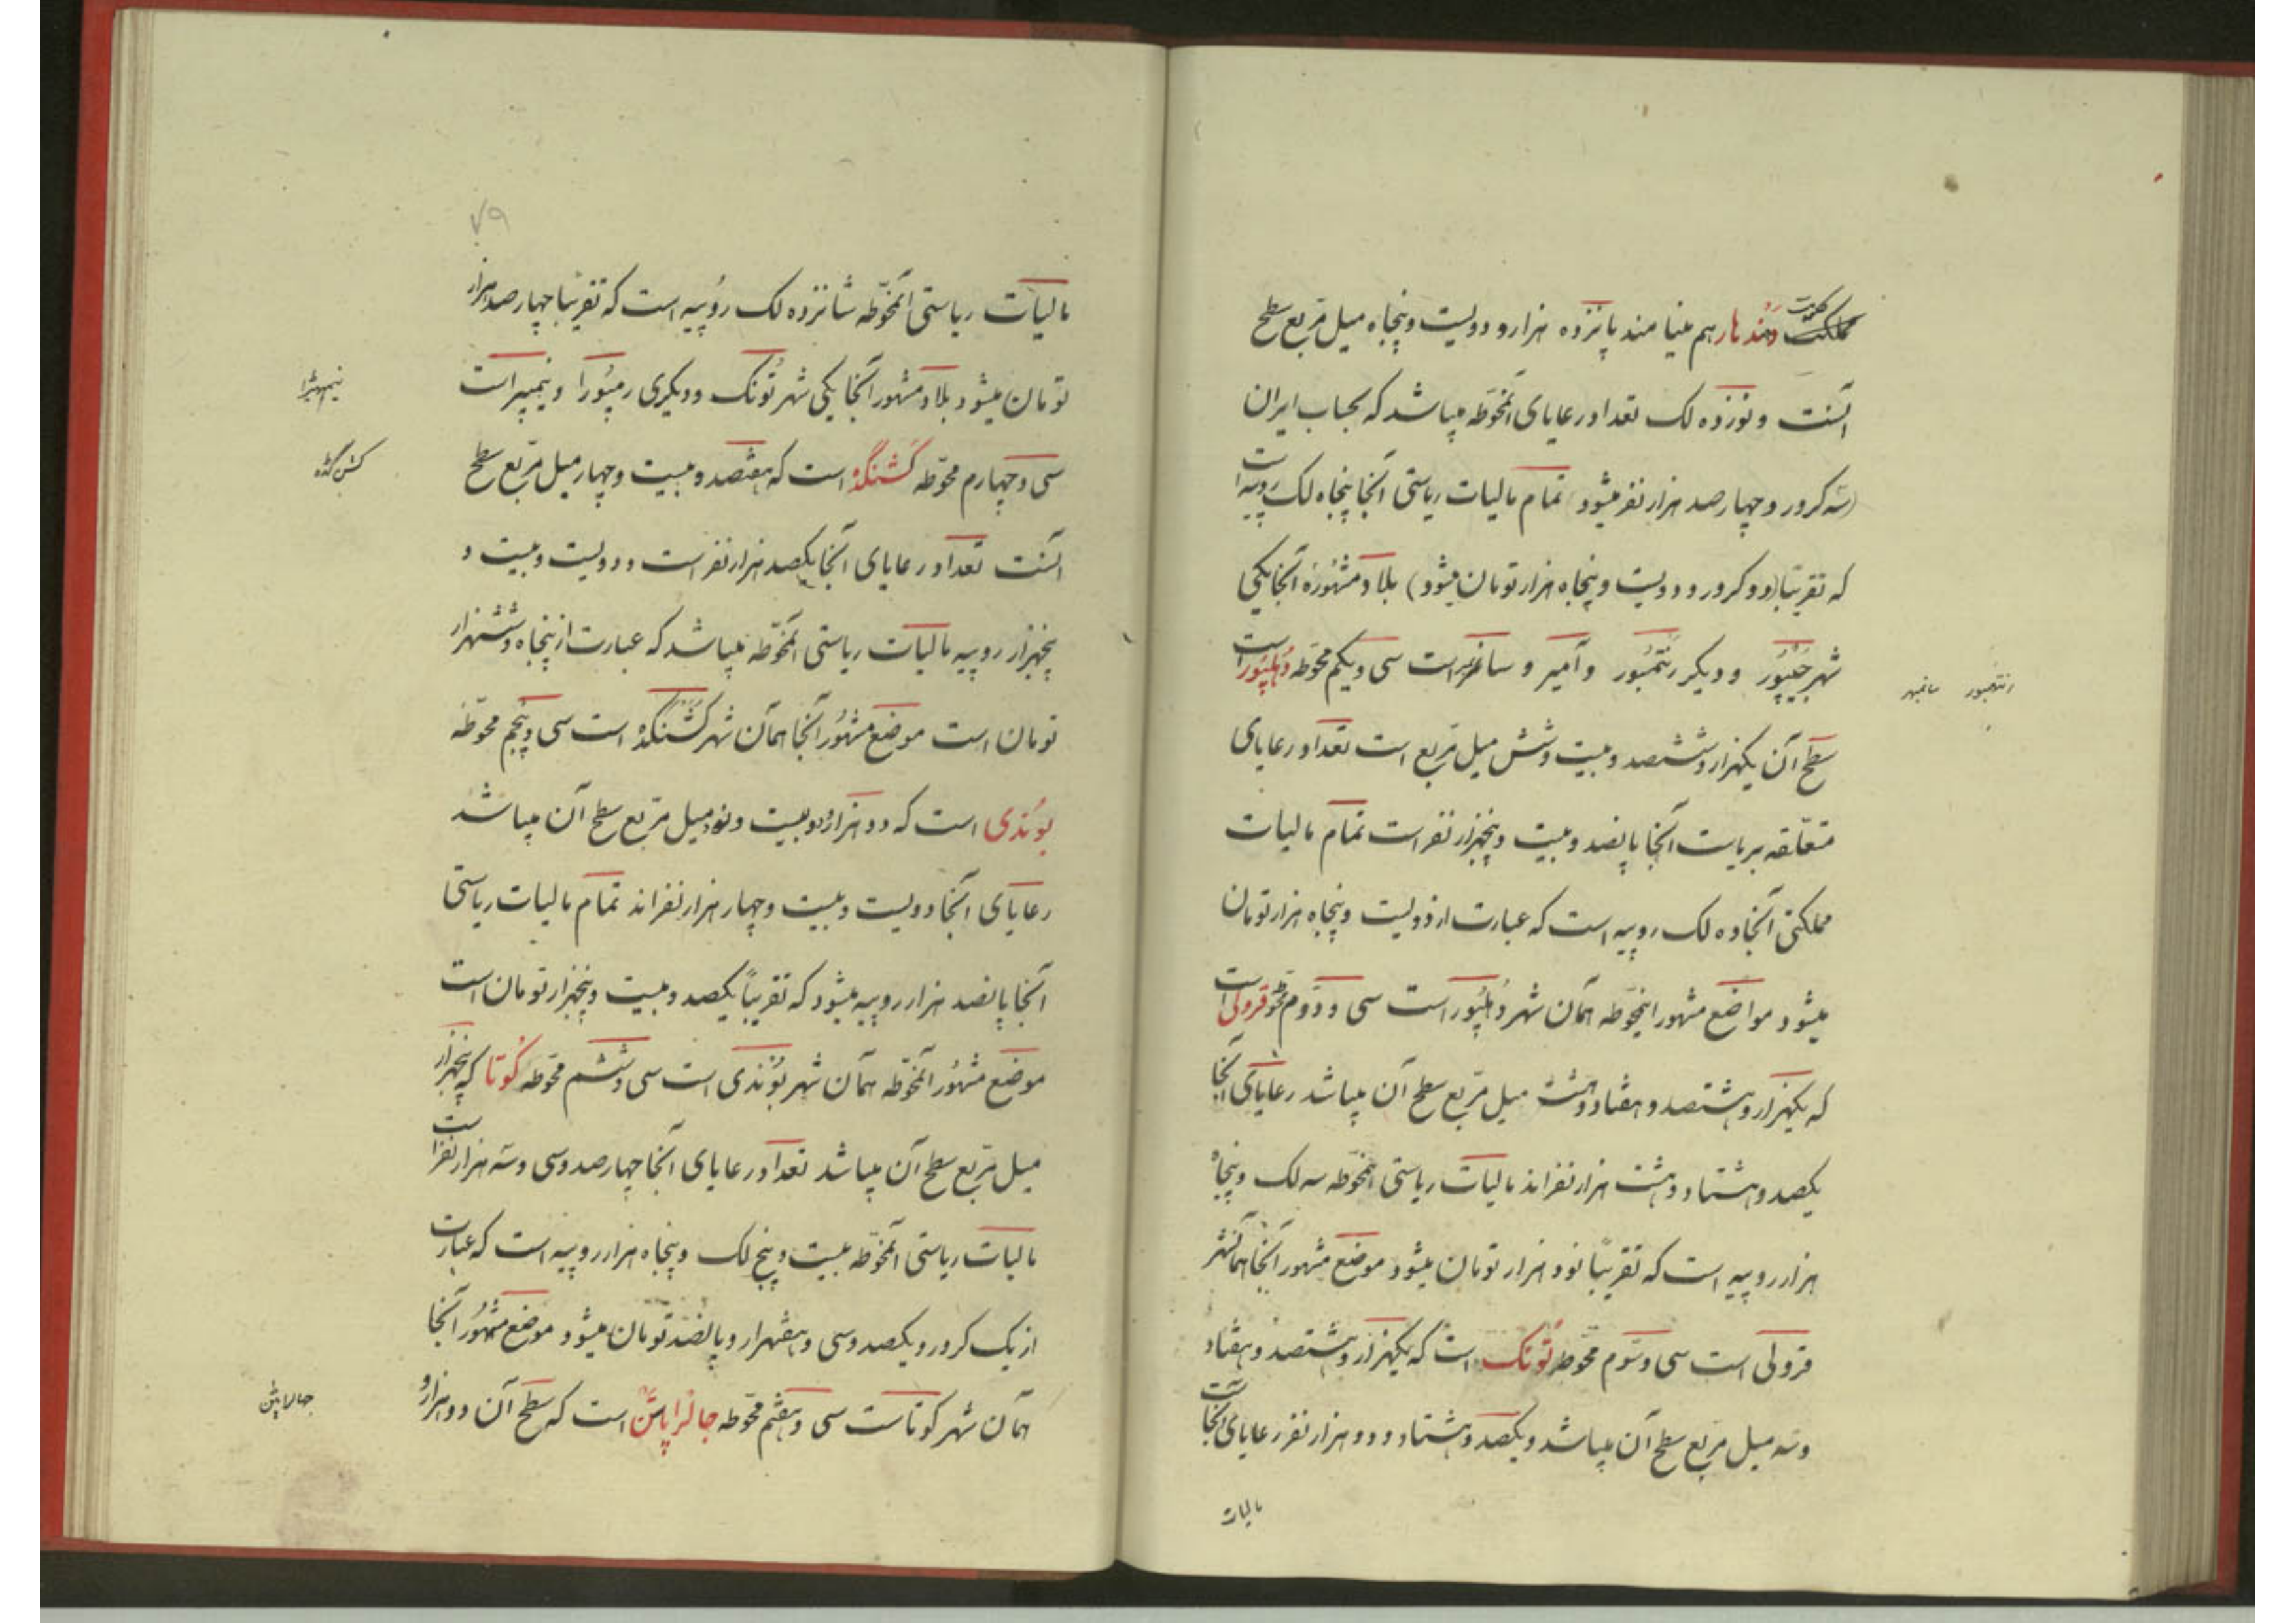 مملکت دُهندهار هم مینامند پانزده هزار و دویست و پنجاه میل مربع سطح
آنست و نوزده لک تعداد رعایای آنمحوّطه میباشد که بحساب ایران
(سه کرور و چهار صد هزار نفر میشود) تمام مالیات ریاستی آنجا پنجاه لک روپیه است
که تقریبًا (دو کرور و دویست و پنجاه هزار تومان میشود) بلاد مشهوره آنجا یکی
شهر جَیپُور و دیگر رنتمبُور و آمیر و سانمر است سی و یکم محوّطه دُهلپُور است
رنتهمبور سانمبهر
سطح آن یکهزار و ششصد و بیست و شش میل مربع است تعداد رعایای
متعلّقه بریاست آنجا پانصد و بیست و پنجهزار نفر است تمام مالیات
مملکتی آنجا ده لک روپیه است که عبارت از دویست و پنجاه هزار تومان
میشود مواضع مشهور اینمحوّطه همان شهر دُهلپُور است سی و دوّم محوّطه قرولی است
که یکهزار و هشتصد و هفتاد و هشت میل مربع سطح آن میباشد رعایای آنجا
یکصد و هشتاد و هشت هزار نفراند مالیات ریاستی آنمحوّطه سه لک و پنجاه
هزار روپیه است که تقریبًا نود هزار تومان میشود موضع مشهور آنجا همانشهر
قرولی است سی و سوّم محوّطه تُونک است که یکهزار و هشتصد و هفتاد
و سه میل مربع سطح آن میباشد و یکصد و هشتاد و دو هزار نفر رعایای آنجاست
مالیات
۷۹
مالیات ریاستی آنمحوّطه شانزده لک روپیه است که تقریبًا چهار صد هزار
تومان میشود بلاد مشهور آنجا یکی شهر تُونک و دیگری رمپُورا و نیمبهیرا است
نیمبهیرا
سی و چهارم محوّطه کَشنگَدْ است که هفتصد و بیست و چهار میل مربع سطح
کشن گده
آنست تعداد رعایای آنجا یکصد هزار نفر است و دویست و بیست و
پنجهزار روپیه مالیات ریاستی آنمحوّطه میباشد که عبارت از پنجاه و ششهزار
تومان است موضع مشهُور آنجا همان شهر کشنگدْ است سی و پنجم محوّطه
بوُندی است که دو هزار و دویست و نود میل مربع سطح آن میباشد
رعایای آنجا دویست و بیست و چهار هزار نفراند تمام مالیات ریاستی
آنجا پانصد هزار روپیه میشود که تقریبًا یکصد و بیست و پنجهزار تومان است
موضع مشهُور آنمحوّطه همان شهر بوُندی است سی و ششم محوّطه کُوتا که پنجهزار
میل مربع سطح آن میباشد تعداد رعایای آنجا چهار صد و سی و سه هزار نفر است
مالیات ریاستی آنمحوّطه بیست و پنج لک و پنجاه هزار روپیه است که عبارت
از یک کرور و یکصد و سی و هفتهزار و پانصد تومان میشود موضع مشهُور آنجا
همان شهر کوتاست سی و هفتم محوّطه جالراپاتَن است که سطح آن دو هزار و
جالاپتن